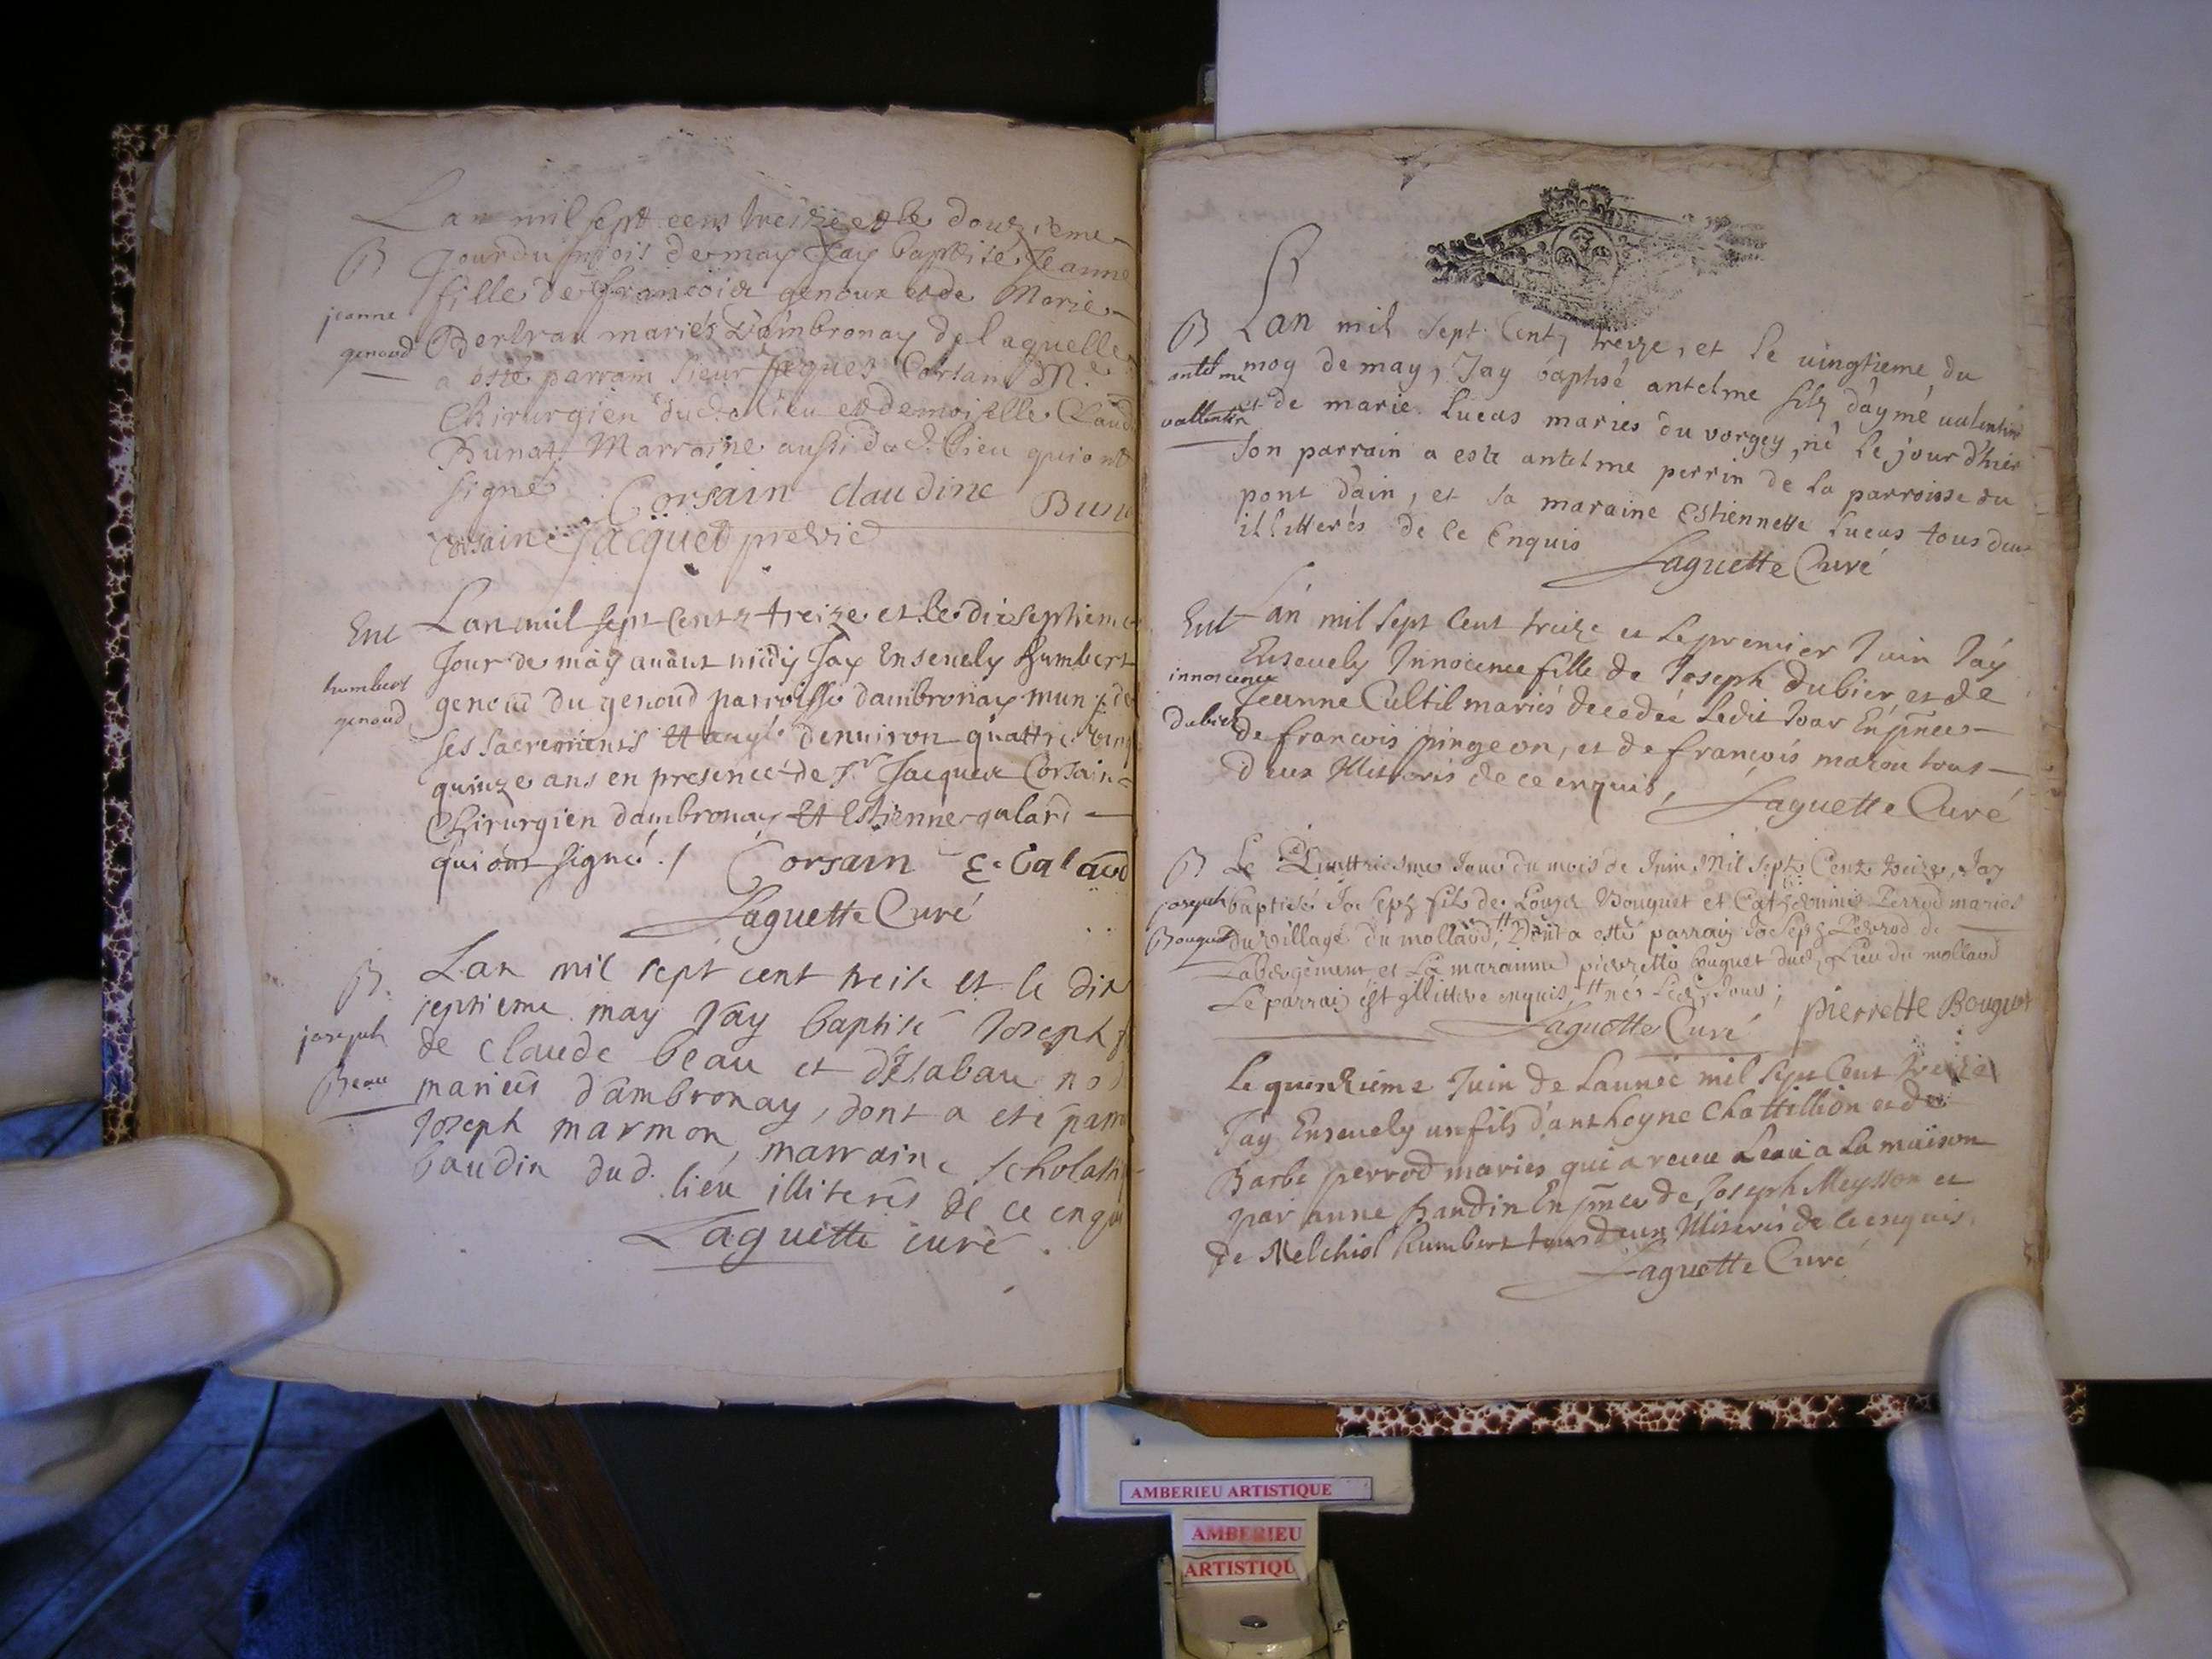 Lan mil sept cens treize et le douzieme
B Jour du mois de may Jay baptisé Jeanne
fille de francoix genoux et de Marie
jeanne genoud
mariés d'ambronay de laquelle
a esté parrain sieur Jaques Corsain Me
Chirurgien dud. lieu et demoiselle Claud
Bunat Marraine aussi dud. lieu qui ont
signé Corsain claudine
Corsain Jacquet
Ent Lan mil sept Cents treize et le dixseptieme
Jour de may avant midy Jay Ensevely humbert
humbert genoud
genoud du genoud parroisse dambronay muny de
ses sacrements et aagé denuiron quattre vingt
quinze ans en presence de Sr Jacques Corsain
Chirurgien dambronay et Estienne galand
qui ont signé ./ Corsain E. Galand
Laguette Curé
B. Lan mil sept cent treise et le dix
septieme may Jay baptisé Joseph f
joseph Beau
de claude beau et
mariés d'ambronay, dont a eté parr
Joseph marmon, marraine scholasti
baudin dud. lieu illiterés de ce enqui
Laguette curé.
B Lan mil sept Cent treize, et le vingtieme du
antelme vallentin
moy de may, Jay baptisé antelme filz d'aymé valentin
et de marie Lucas mariés du vorgey, né le jour d'hier
son parrain a este antelme perrin de la parroisse du
pont d'ain, et sa maraine Estiennette Lucas tous deux
illitterés de ce Enquis
Laguette Curé
Ent Lan mil sept Cent treize et le premier Juin Jay
innocence dubier
Ensevely Innocence fille de Joseph dubier et de
Jeanne Cultil mariés decedée ledit Jour En pnces
de francois pingeon, et de françois mazou tous
deux illiterés de ce enquis,
Laguette Curé
B Le Quattriesme Jour du mois de Juin Mil sept Cent treize, Jay
joseph Bouguet
baptisé Joseph fils de Bouguet et Perrod mariés
du village du mollard, Dont a esté parrain Joseph Perrod de
Labergement et La maraine pierrette bouguet dud. Lieu du mollard
Le parrain est illittere enquis, né Led. Jour;
Laguette Curé Pierrette Bouguet
Le quinzieme Juin de Lannée mil sept Cent treize
Jay Ensevely un fils d'anthoyne Chattillion et de
Barbe perrod mariés qui a receu Leau a La maison
par anne baudin En pnce de Joseph Meysson et
de Melchiol humbert tous deux illiterés de ce enquis.
Laguette Curé
AMBERIEU ARTISTIQUE
AMBERIEU
ARTISTIQU